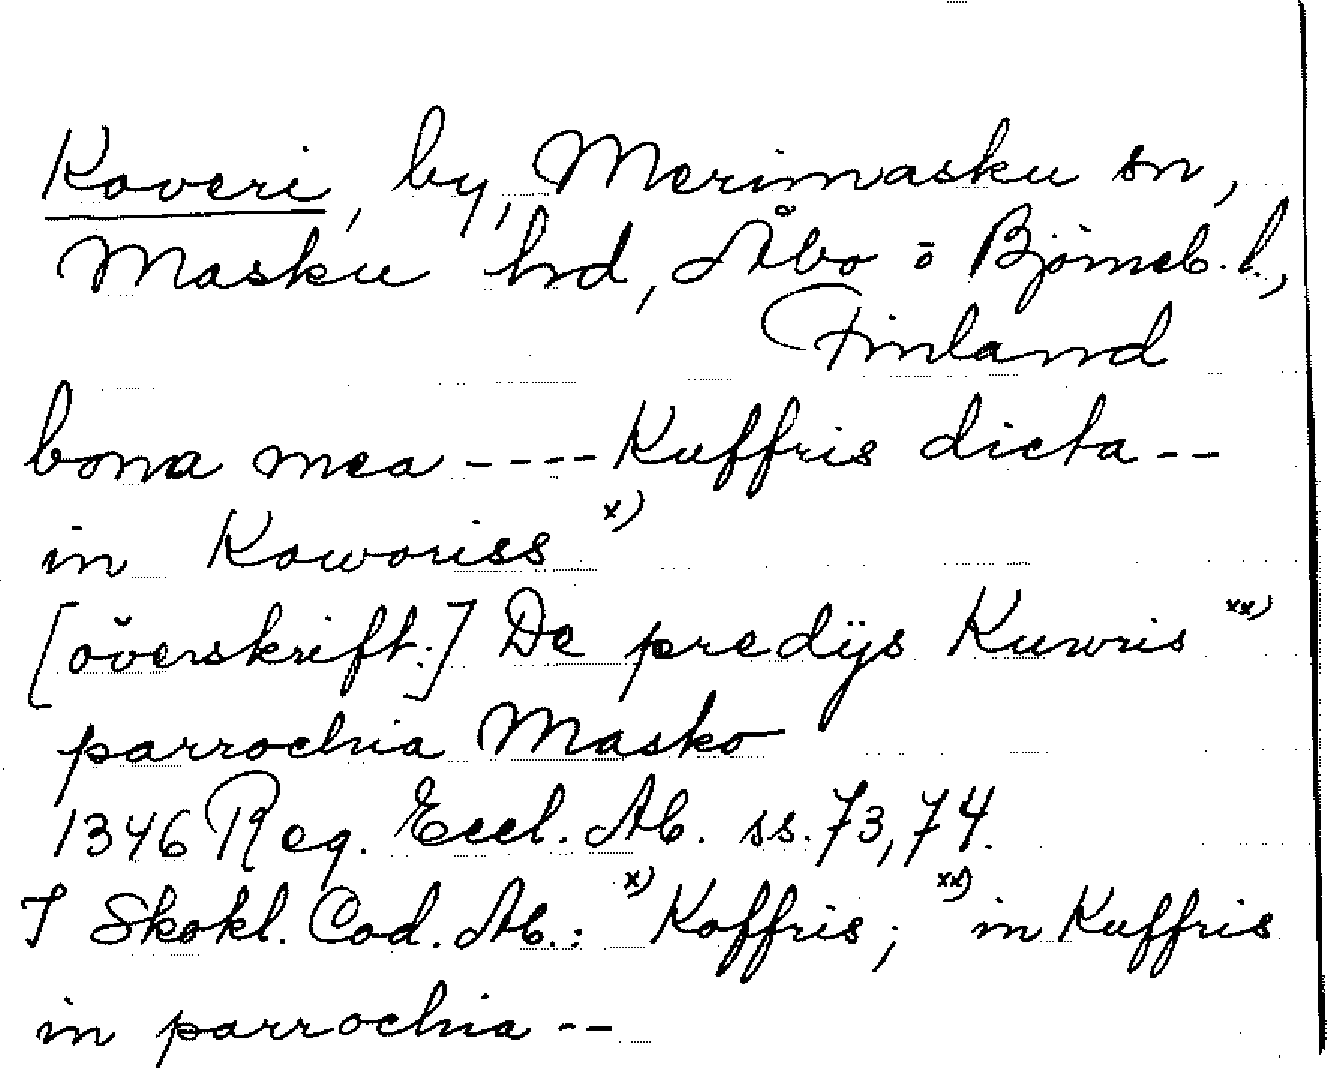 Koveri, by, Merimasku sn,
Masku hrd, Åbo o Björneb. l.,
Finland
bona mea ---- Kuffris dicta --
in Koworiss x)
[överskrift:] De predijs Kuwris xx)
parrochia Masko
1346 Reg. Eccl. Ab. ss. 73, 74.
I Skokl. Cod. Ab.: x) Koffris; xx) in Kuffris
in parrochia --